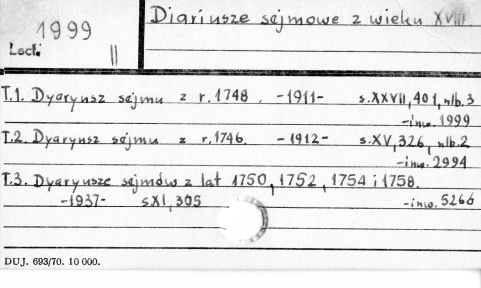 Diariusze sejmowe z wieku XVIII.
1999
II
T.1. Dyaryusz sejmu z r. 1748. -1911- s.XXVII, 401, nlb.3
-inw. 1999
T.2. Dyaryusz sejmu z r. 1746. -1912- s.XV, 326, nlb.2
-inw. 2994
T.3. Dyaryusze sejmów z lat 1750, 1752, 1754 i 1758.
-1937- s.XI, 305 -inw. 5266
DUJ. 693/70. 10 000.